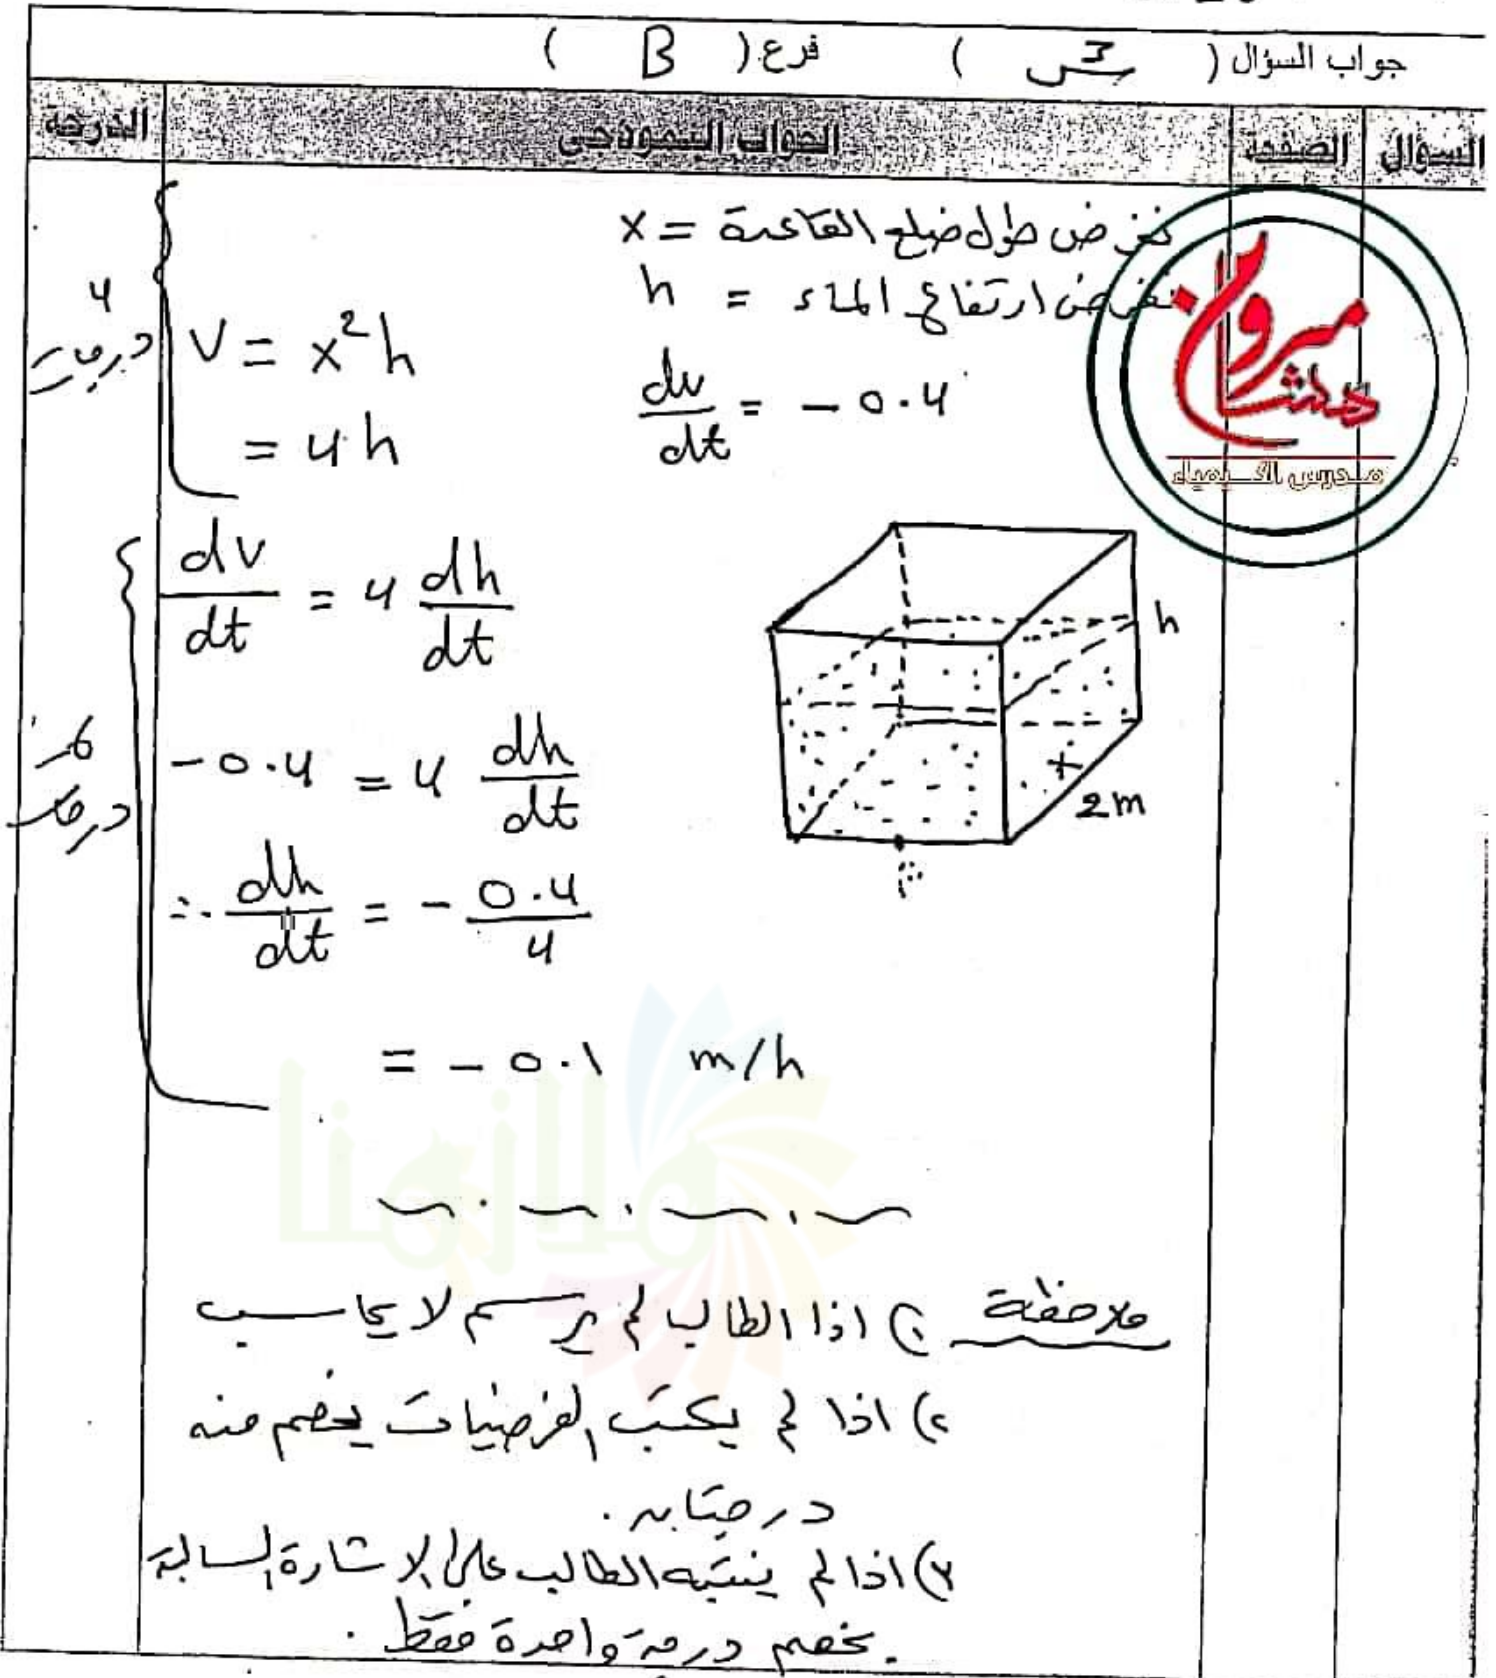 جواب السؤال ( س3 ) فرع ( B )
السؤال الصفحة الجواب النموذجي الدرجة
نفرض طول ضلع القاعدة = x
نفرض ارتفاع الماء = h
dv/dt = - 0.4
4
درجات
V = x²h
= 4h
dv/dt = 4 dh/dt
6
درجات
-0.4 = 4 dh/dt
∴ dh/dt = - 0.4/4
= - 0.1 m/h
h
x
2m
هشام
مدرس الكيمياء
ملازمنا
ملاحظة 1) اذا الطالب لم يرسم لا يحاسب
2) اذا لم يكتب الفرضيات يخصم منه
درجتان .
3) اذا لم ينتبه الطالب على الاشارة السالبة
يخصم درجة واحدة فقط .